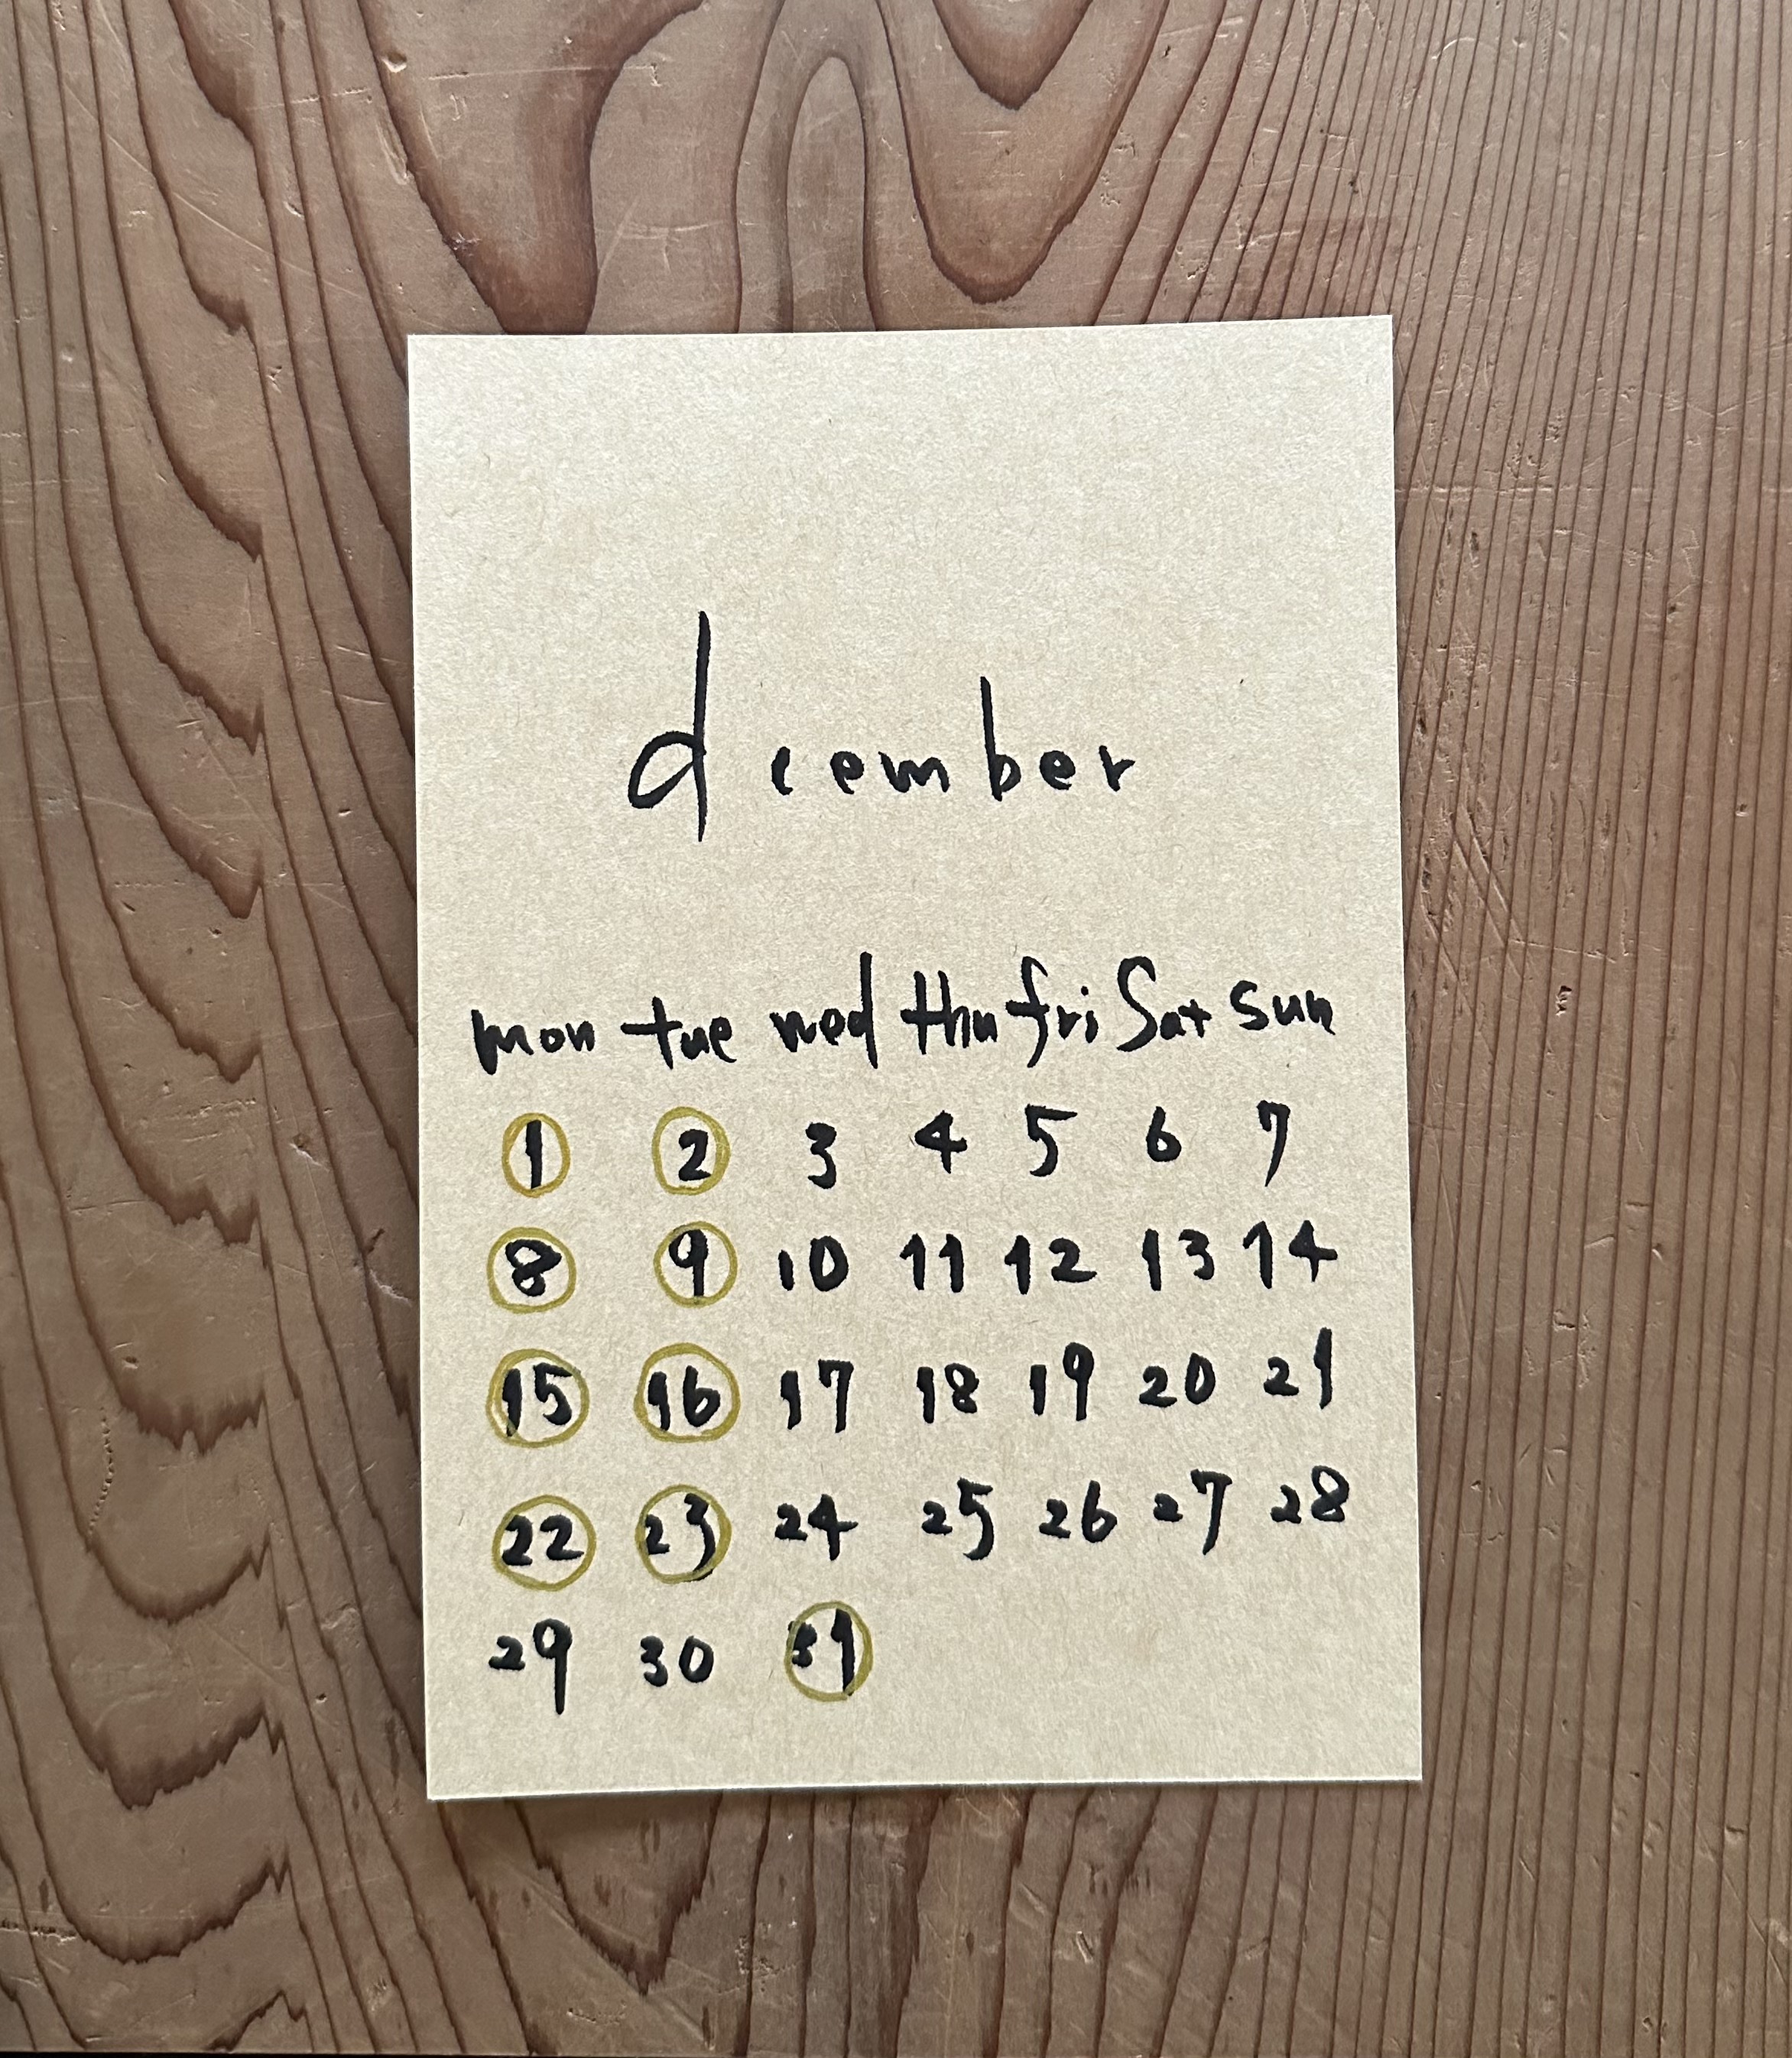 dcember
mon tue wed thu fri Sat sun
1 2 3 4 5 6 7
8 9 10 11 12 13 14
15 16 17 18 19 20 21
22 23 24 25 26 27 28
29 30 31